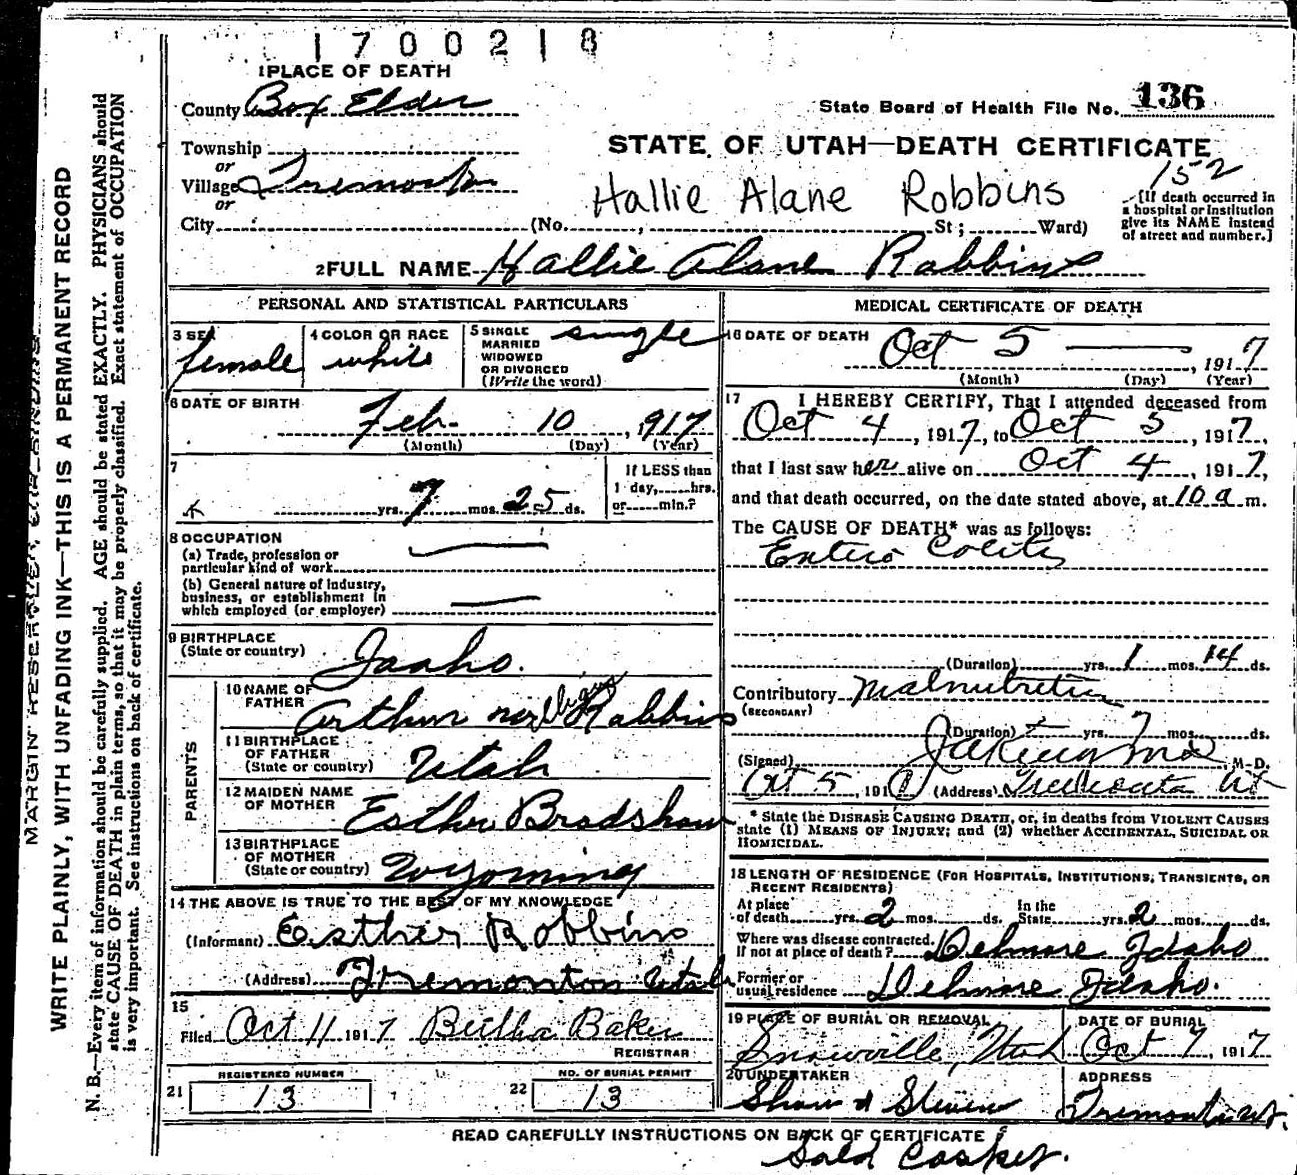 1700218
1 PLACE OF DEATH
County Box Elder
State Board of Health File No. 136
Township
or
Village Tremonton
or
City
STATE OF UTAH—DEATH CERTIFICATE
152
Hallie Alane Robbins
(No. , St; Ward)
[If death occurred in
a hospital or institution
give its NAME instead
of street and number.]
2 FULL NAME Hallie Alane Robbins
PERSONAL AND STATISTICAL PARTICULARS
3 SEX
female
4 COLOR OR RACE
white
5 SINGLE
MARRIED
WIDOWED
OR DIVORCED
(Write the word)
single
6 DATE OF BIRTH
Feb. 10, 917
(Month) (Day) (Year)
7
yrs. 7 mos. 25 ds.
If LESS than
1 day, hrs.
or min.?
8 OCCUPATION
(a) Trade, profession or
particular kind of work
(b) General nature of industry,
business, or establishment in
which employed (or employer)
9 BIRTHPLACE
(State or country)
Idaho.
PARENTS
10 NAME OF
FATHER
Arthur Robbins
11 BIRTHPLACE
OF FATHER
(State or country)
Utah
12 MAIDEN NAME
OF MOTHER
Esther Bradshaw
13 BIRTHPLACE
OF MOTHER
(State or country)
Wyoming
14 THE ABOVE IS TRUE TO THE BEST OF MY KNOWLEDGE
(Informant) Esther Robbins
(Address) Tremonton Utah
15
Filed Oct 11 1917 Bertha Baker
REGISTRAR
21
REGISTERED NUMBER
13
22
NO. OF BURIAL PERMIT
13
MEDICAL CERTIFICATE OF DEATH
16 DATE OF DEATH
Oct 5, 1917
(Month) (Day) (Year)
17 I HEREBY CERTIFY, That I attended deceased from
Oct 4, 1917, to Oct 5, 1917,
that I last saw her alive on Oct 4, 1917,
and that death occurred, on the date stated above, at 10 a m.
The CAUSE OF DEATH* was as follows:
Entero Colitis
(Duration) yrs. 1 mos. 14 ds.
Contributory Malnutrition
(SECONDARY)
(Duration) yrs. 7 mos. ds.
(Signed) M.D.
Oct 5, 191 (Address) Tremonton Ut
* State the DISEASE CAUSING DEATH, or, in deaths from VIOLENT CAUSES
state (1) MEANS OF INJURY; and (2) whether ACCIDENTAL, SUICIDAL OR
HOMICIDAL.
18 LENGTH OF RESIDENCE (FOR HOSPITALS, INSTITUTIONS, TRANSIENTS, OR
RECENT RESIDENTS)
At place
of death yrs. 2 mos. ds.
In the
State yrs. 2 mos. ds.
Where was disease contracted.
If not at place of death? Delmore Idaho
Former or
usual residence Delmore Idaho.
19 PLACE OF BURIAL OR REMOVAL
Snowville, Utah
DATE OF BURIAL
Oct 7, 1917
20 UNDERTAKER
Shaw & Steven
ADDRESS
Tremonton Ut.
READ CAREFULLY INSTRUCTIONS ON BACK OF CERTIFICATE
Sold Casket.
MARGIN RESERVED FOR BINDING
WRITE PLAINLY, WITH UNFADING INK—THIS IS A PERMANENT RECORD
N. B.—Every item of information should be carefully supplied. AGE should be stated EXACTLY. PHYSICIANS should
state CAUSE OF DEATH in plain terms, so that it may be properly classified. Exact statement of OCCUPATION
is very important. See instructions on back of certificate.